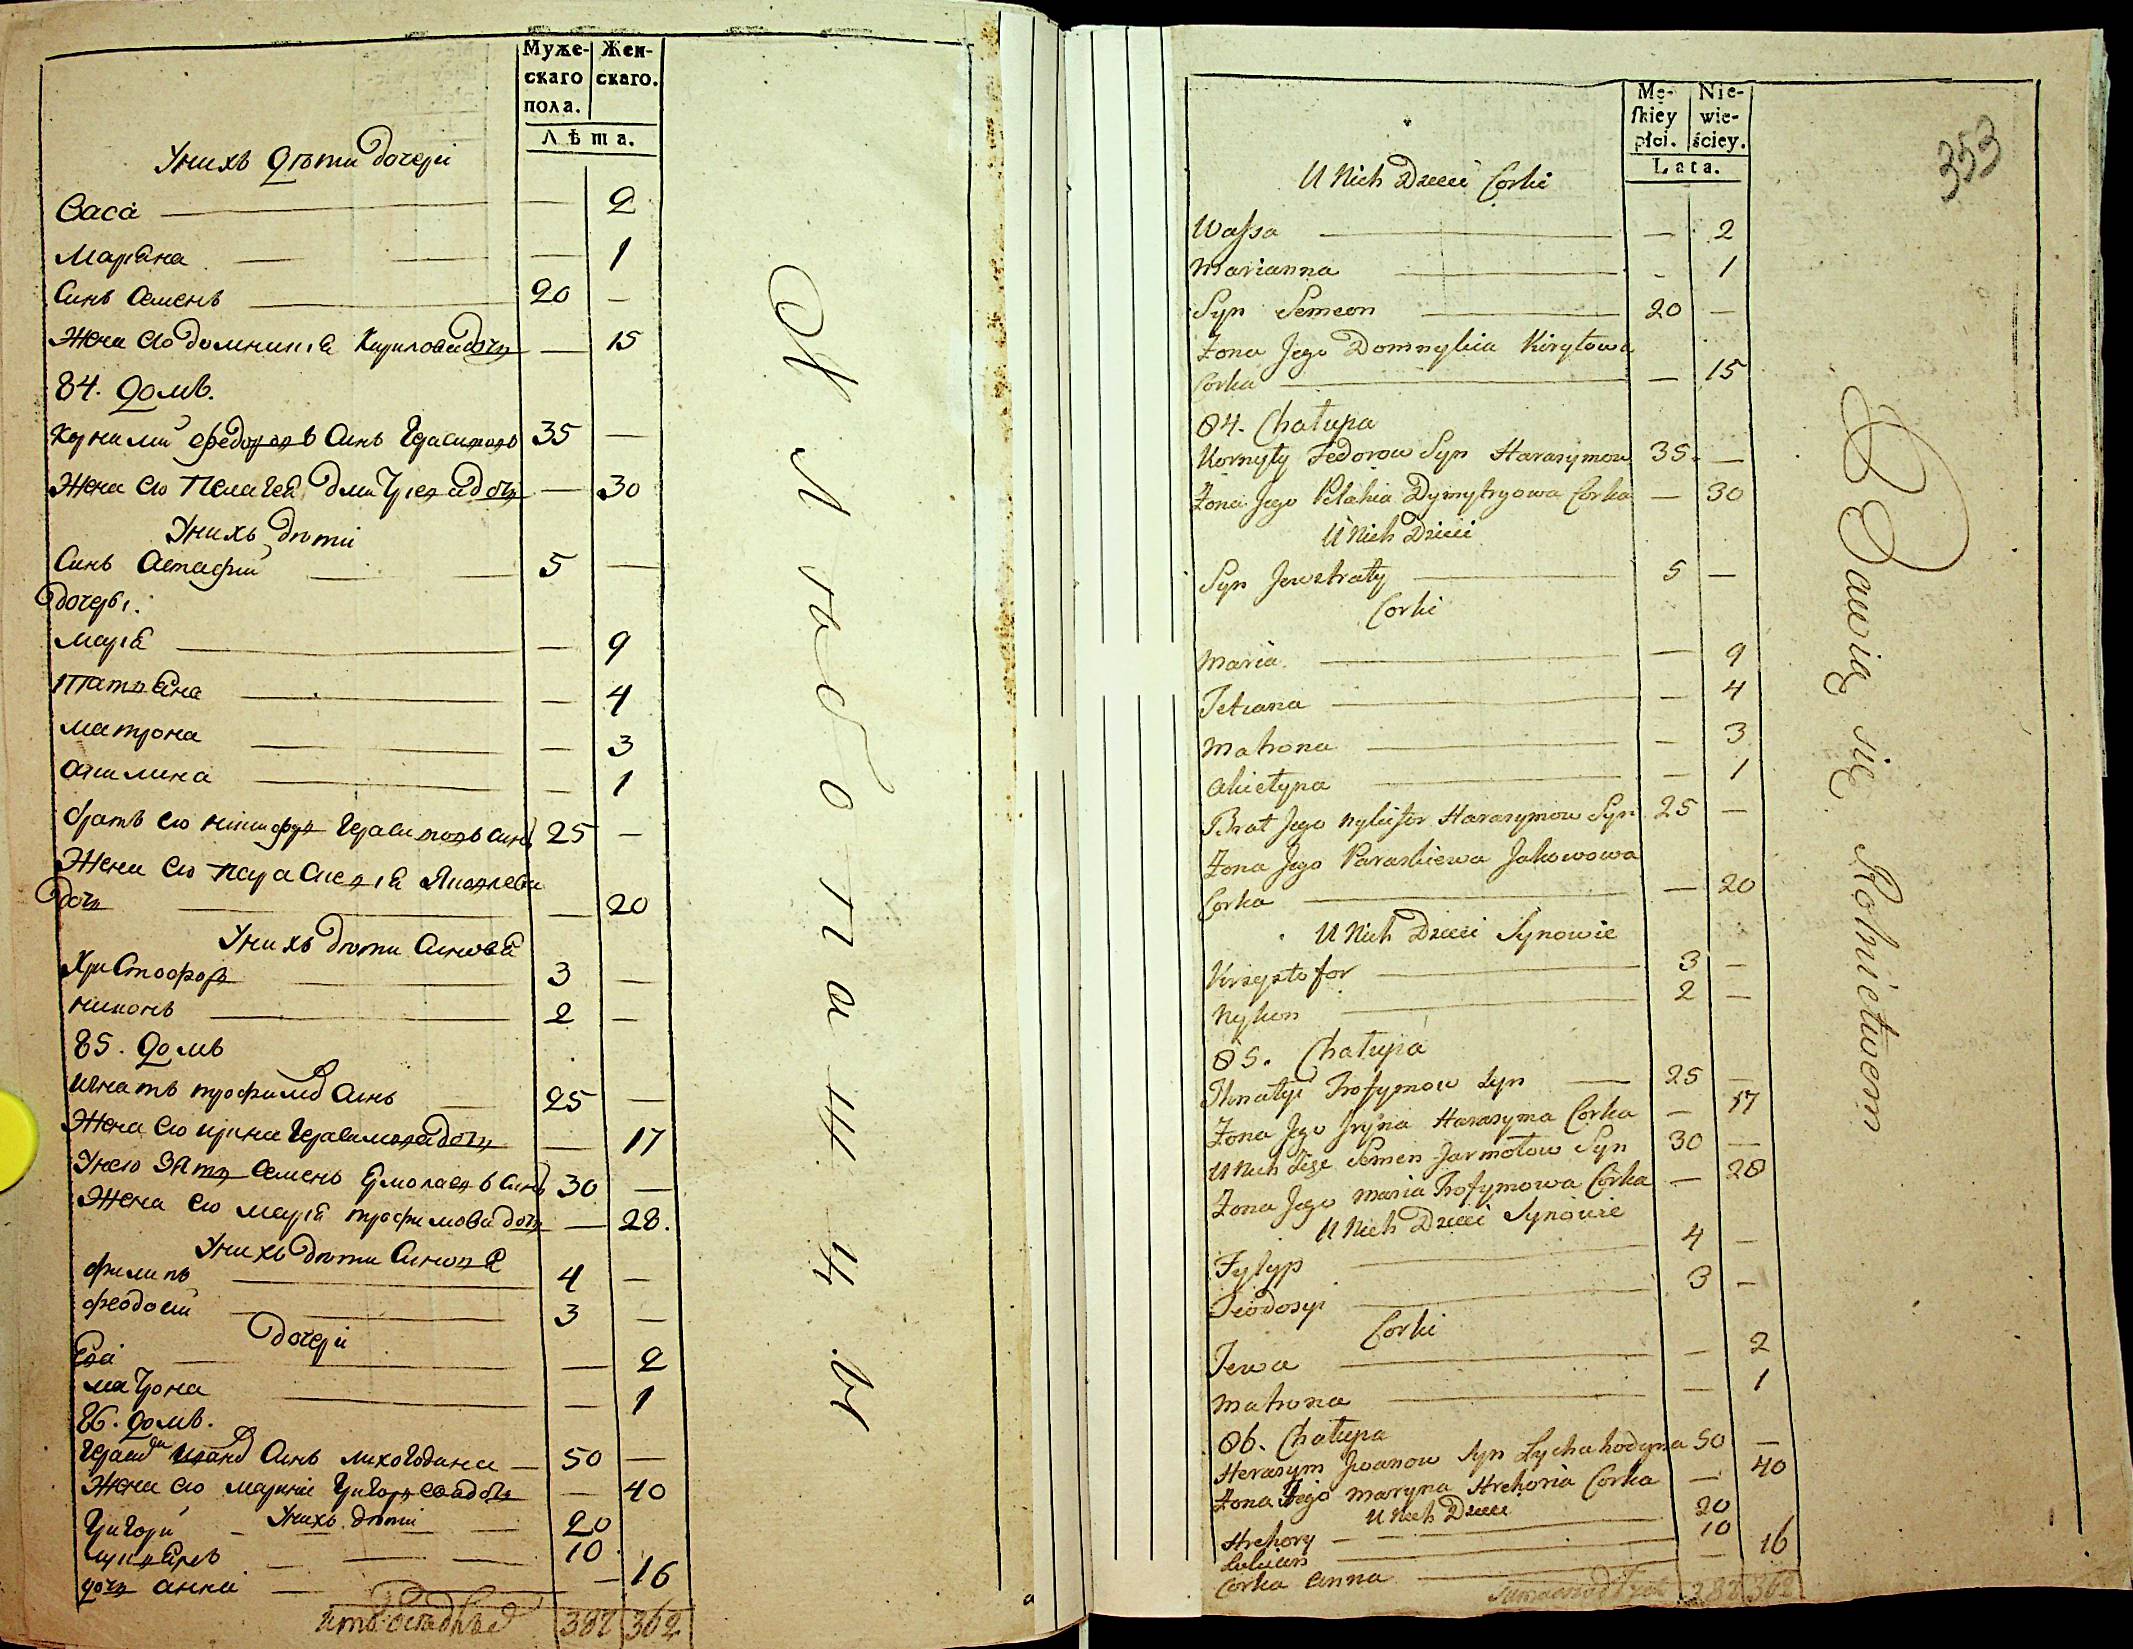 Муже-
скаго
пола.
Жен-
скаго.
Лѣта.
Унихъ Дѣти дочери
Васа — — 2
Маріяна — — 1
Синъ Семенъ — 20 —
Жена Его домникія Кирилова дочь — 15
84. Домъ.
Корнилий Федоровъ Синъ Герасимовъ 35 —
Жена Его Пелагея Дмитріева дочь — 30
Унихъ дѣти
Синъ Астафий — 5 —
дочеры.
Марія — — 9
Татьяна — — 4
Матрона — — 3
Акилина — — 1
братъ Его Никифоръ Герасимовъ Синъ 25 —
Жена Его Параскевія Яковлева
дочь — — 20
Унихъ дѣти Синовя
Христофоръ — 3 —
Никонъ — 2 —
85. Домъ
Игнатъ Трофимовъ Синъ — 25 —
Жена Его Ирина Герасимова дочь — 17
Унего Зять Семенъ Ермолаевъ Синъ 30 —
Жена Его Марія Трофимова дочь — 28.
Унихъ дѣти Синовя
Филипъ — 4 —
Феодосий — 3 —
дочери
Ева — — 2
Матрона — — 1
86. Домъ.
Герасимъ Ивановъ Синъ Лихогодина — 50 —
Жена Его Марина Григорьева дочь — 40
Унихъ дѣти
Григори — 20
Лукіянъ — 10
дочь Анна — — 16
387 362
Хлѣбопашцы
353
Mę-
ſkiey
płci.
Nie-
wie-
ściey.
Lata.
U Nich Dzieci Corki
Waſsa — — 2
Marianna — — 1
Syn Semeon — 20 —
Żona Jego Domnykia Kiryłowa
Corka — — 15
84. Chałupa
Kornyły Fedorow Syn Harasymow 35. —
Żona Jego Pelahia Dymytryowa Corka — 30
U Nich Dzieci
Syn Jewstraty — 5 —
Corki
Maria — — 9
Tetiana — — 4
Matrona — — 3
Akielyna — — 1
Brat Jego Nykifor Harasymow Syn 25 —
Żona Jego Paraskiewa Jakowowa
Corka — — 20
U Nich Dzieci Synowie
Krzysztofor — 3 —
Nykon — 2 —
85. Chałupa
Ihnatyi Trofymow Syn — 25 —
Żona Jego Iryna Harasyma Corka — 17
U Nich Zięć Semen Jarmołow Syn 30 —
Żona Jego Maria Trofymowa Corka — 28
U Nich Dzieci Synowie
Fylyp — 4 —
Teodosyi — 3 —
Corki
Jewa — — 2
Matrona — — 1
86. Chałupa
Herasym Iwanow Syn Lychahodyna 50 —
Żona Jego Maryna Hrehoria Corka — 40
U Nich Dzieci
Hrehory — 20
Lukian — 10
Corka Anna — — 16
382 362
Bawią się Rolnictwem